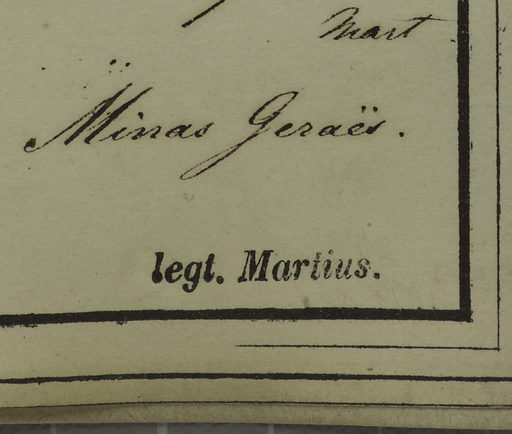 Mart
Minas Geraës.
legt. Martius.